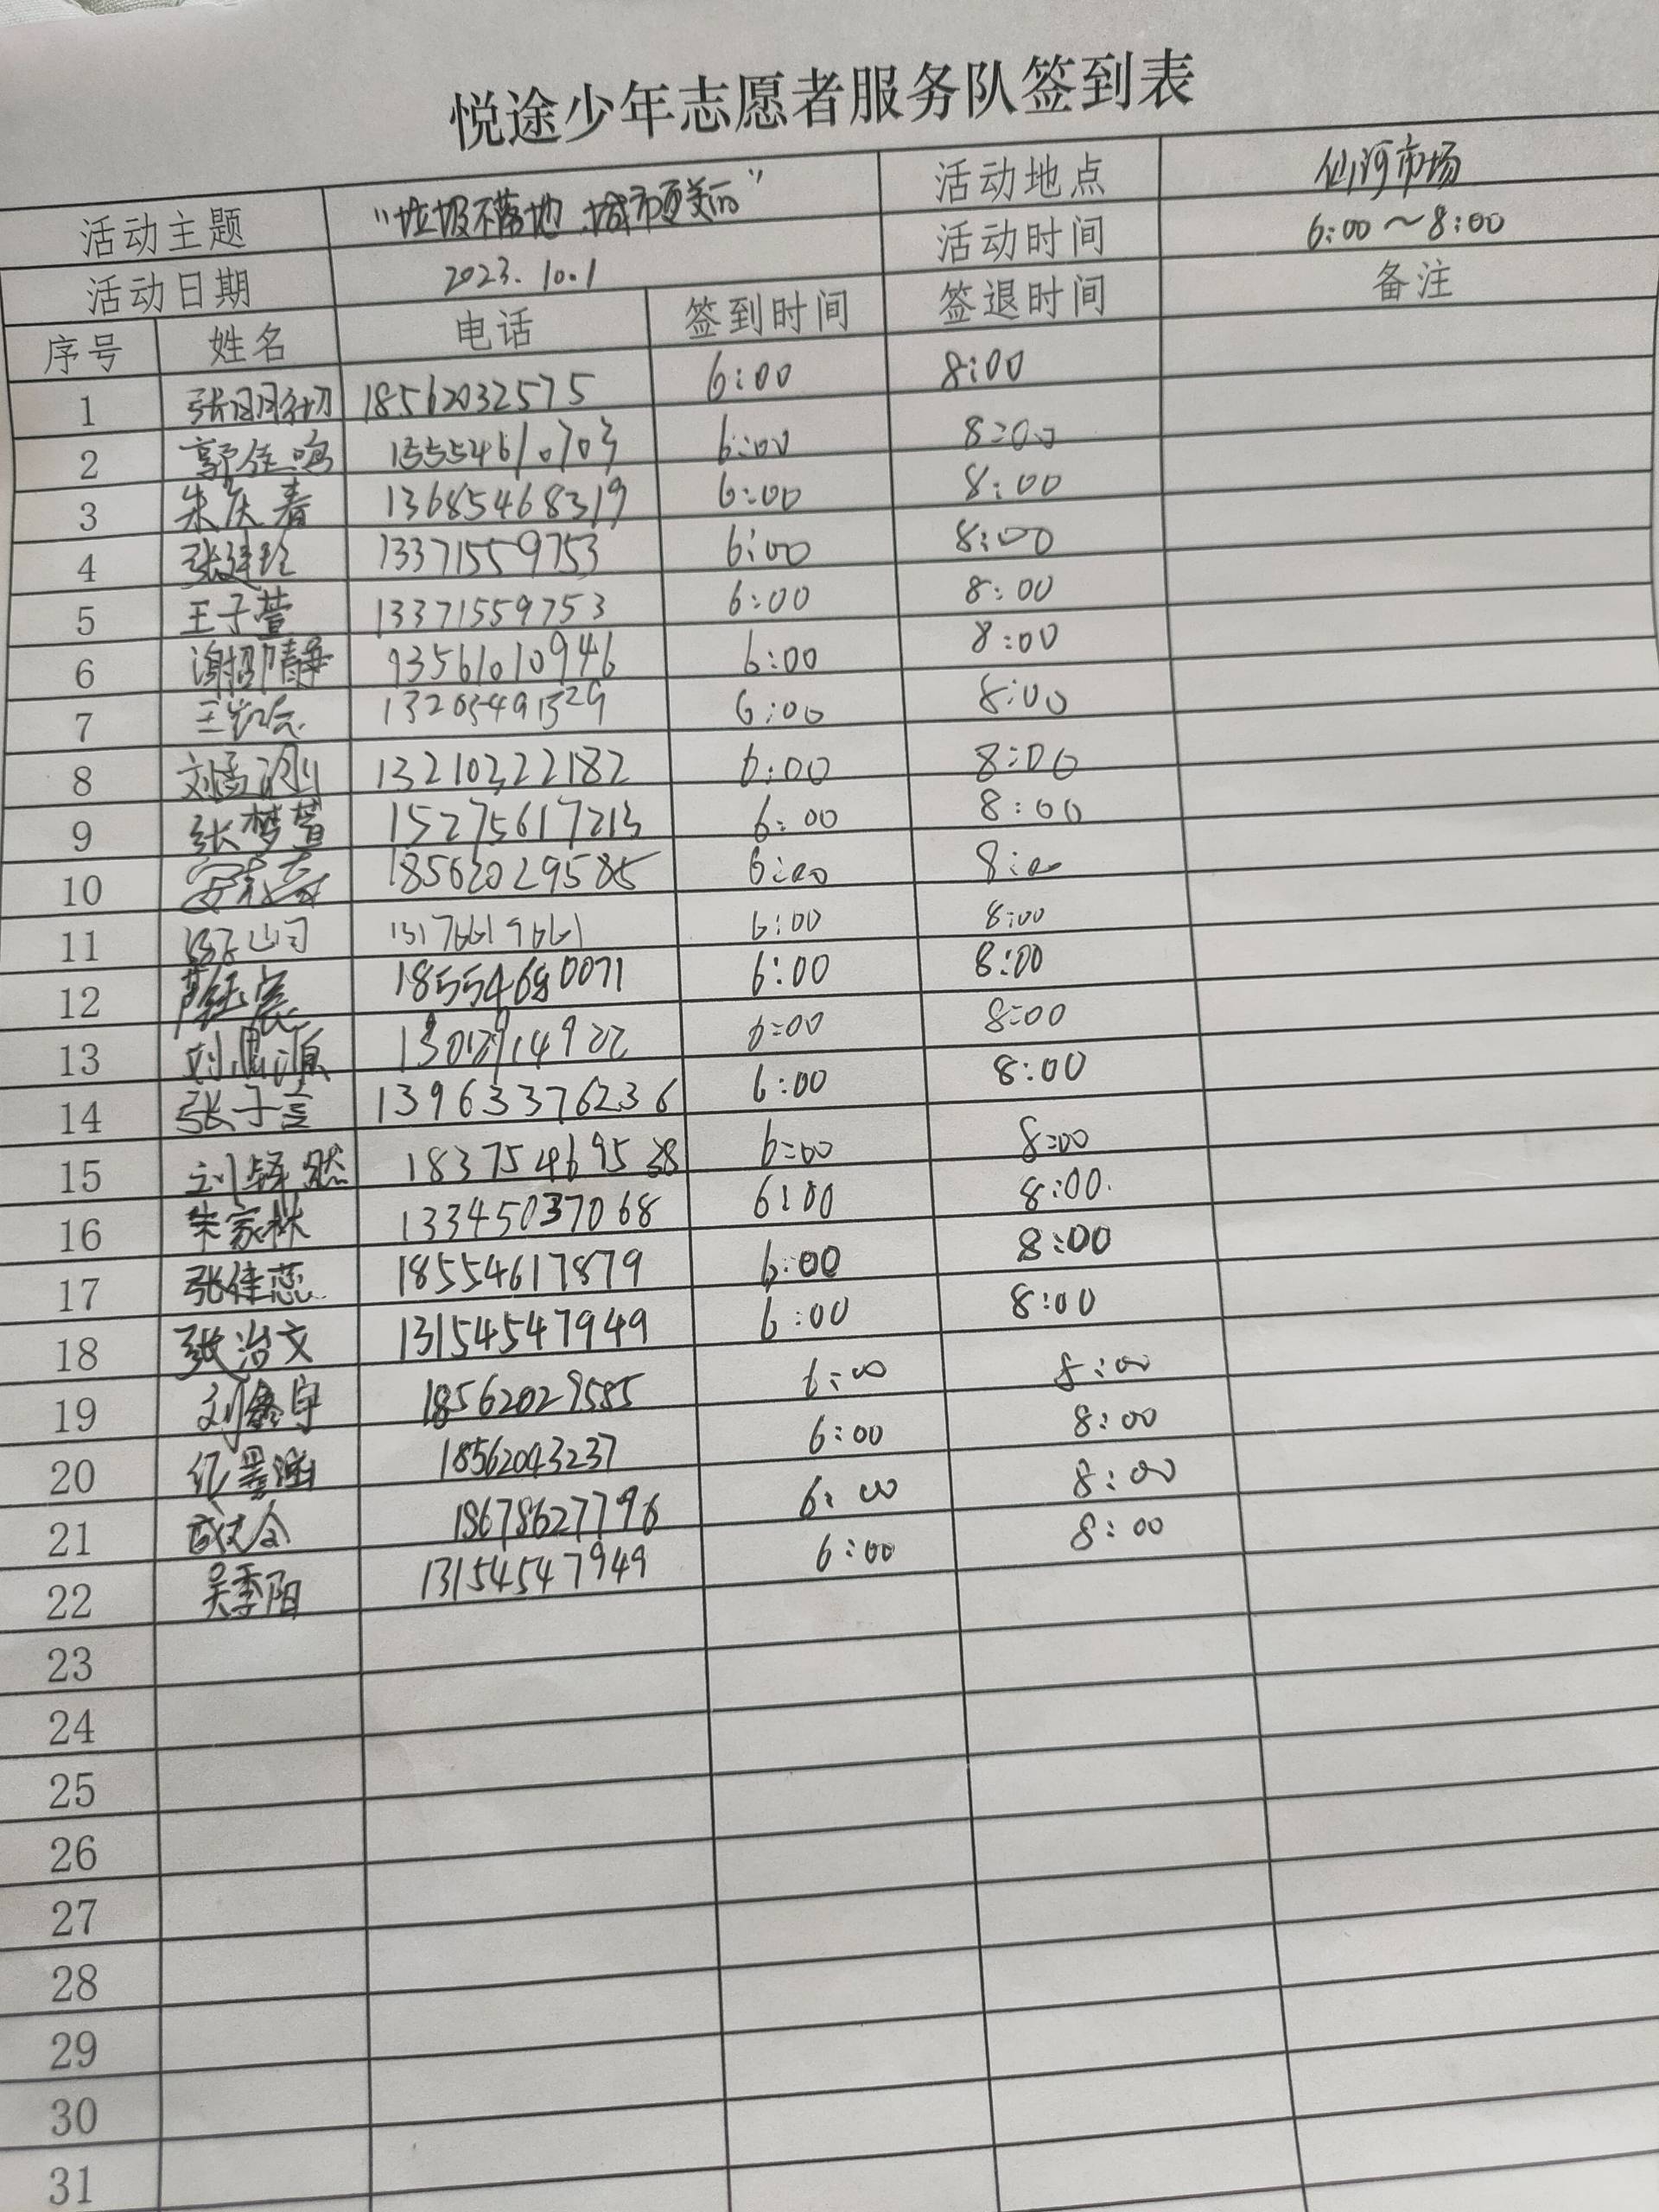 悦途少年志愿者服务队签到表
活动主题 “垃圾不落地.城市更美丽” 活动地点 仙河市场
活动日期 2023.10.1 活动时间 6:00～8:00
序号 姓名 电话 签到时间 签退时间 备注
1 18562032575 6:00 8:00
2 郭佳鸣 15554610703 6:00 8:00
3 朱庆春 13685468319 6:00 8:00
4 13371559753 6:00 8:00
5 王子萱 13371559753 6:00 8:00
6 6:00 8:00
7 6:00 8:00
8 13210322182 6:00 8:00
9 张梦萱 15275617213 6:00 8:00
10 18562029585 6:00 8:00
11 6:00 8:00
12 6:00 8:00
13 6:00 8:00
14 张子言 13963376236 6:00 8:00
15 6:00 8:00
16 朱家林 13345037068 6:00 8:00
17 张佳蕊 18554617879 6:00 8:00
18 张治文 13154547949 6:00 8:00
19 刘鑫宇 18562029585 6:00 8:00
20 18562043237 6:00 8:00
21 18678627796 6:00 8:00
22 吴季阳 13154547949 6:00 8:00
23
24
25
26
27
28
29
30
31